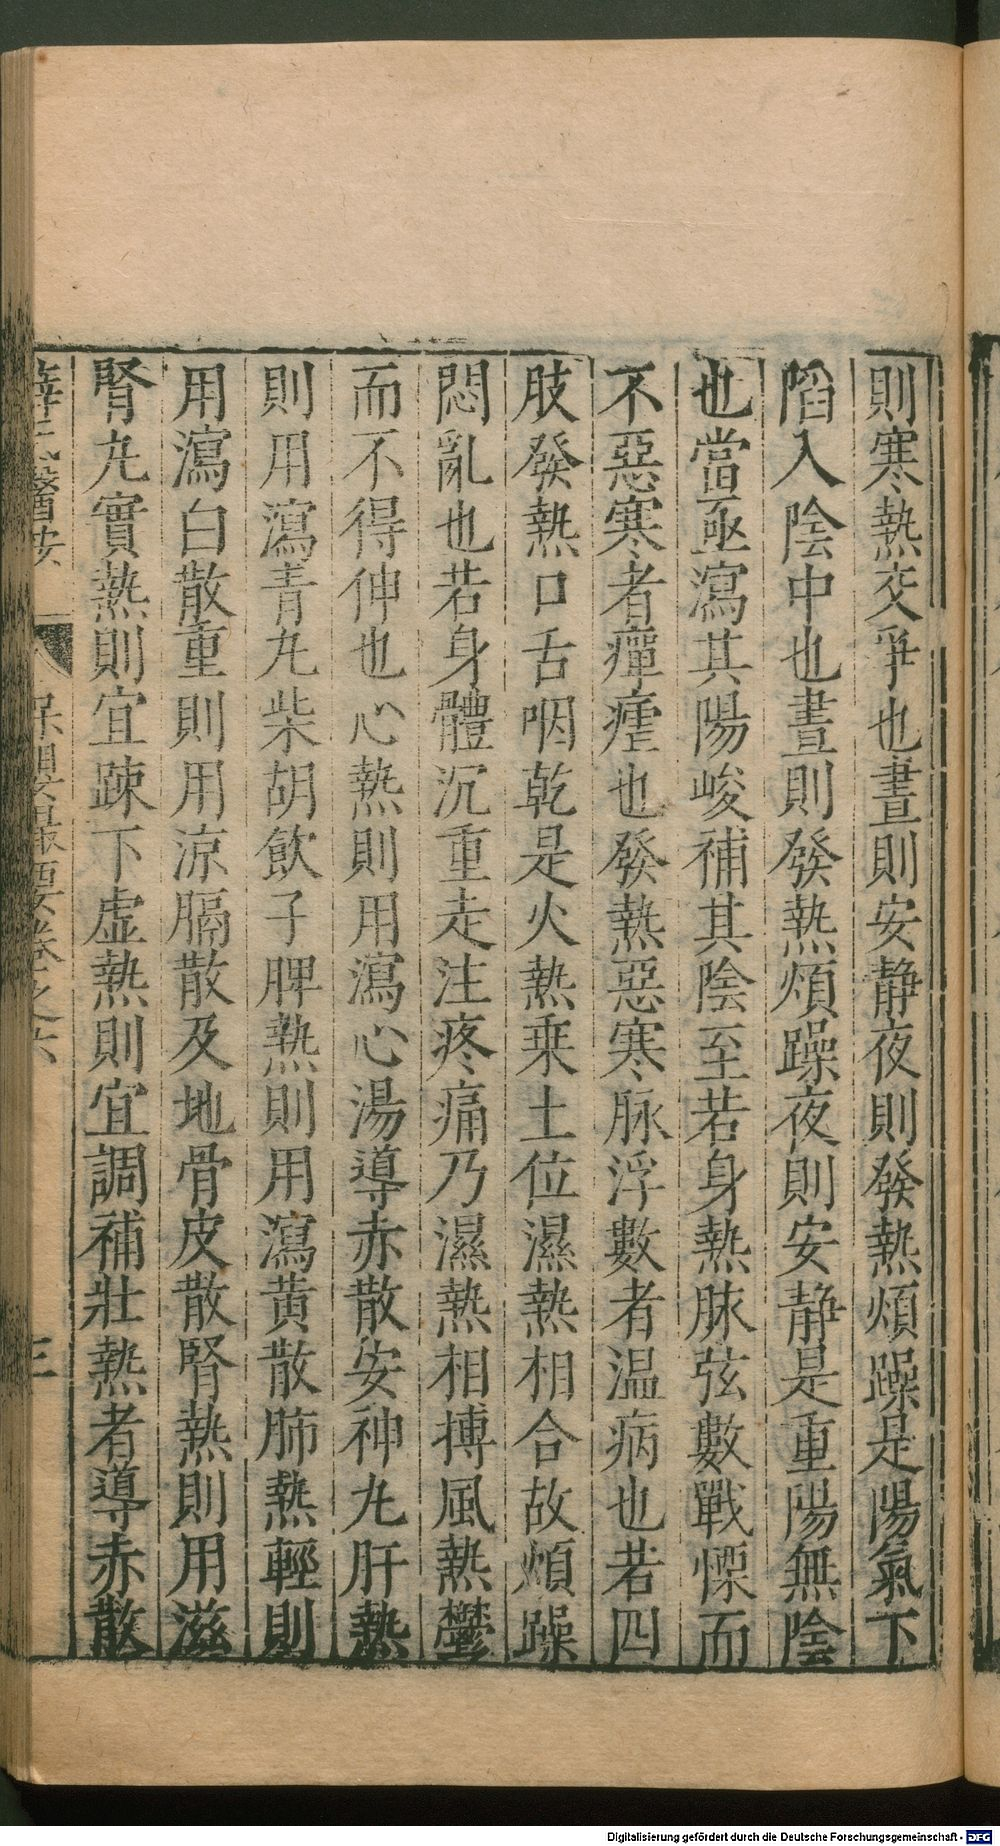 則寒熱交爭也晝則安靜夜則發熱煩躁是陽氣下
陷入陰中也晝則發熱煩躁夜則安靜是重陽無陰
也當亟瀉其陽峻補其陰至若身熱脉弦數戰慄而
不惡寒者癉瘧也發熱惡寒脉浮數者温病也若四
肢發熱口舌咽乾是火熱乗土位濕熱相合故煩躁
悶亂也若身體沉重走注疼痛乃濕熱相搏風熱鬱
而不得伸也心熱則用瀉心湯導赤散安神丸肝熱
則用瀉青丸柴胡飲子脾熱則用瀉黄散肺熱輕則
用瀉白散重則用凉膈散及地骨皮散腎熱則用滋
腎丸實熱則宜踈下虚熱則宜調補壯熱者導赤散
薛氏醫按
保嬰撮要卷之六
三
Digitalisierung gefördert durch die Deutsche Forschungsgemeinschaft - DFG